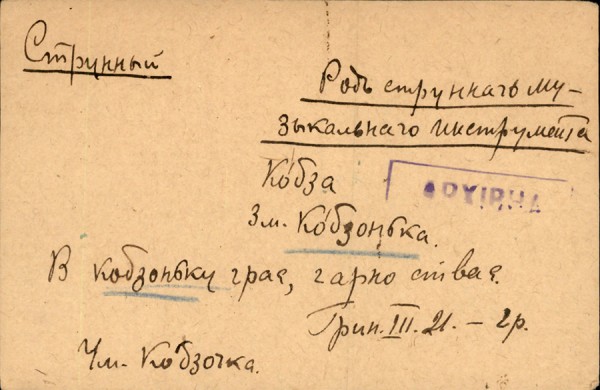 Струнный
Родъ струннагъ му-
зыкальнаго инструмента
Ко́бза
АРХІВНА
Зм. Ко́бзонька.
В кобзоньку грає, гарно співає.
Грин. III. 21. – 2р.
Чм. Ко́бзочка.